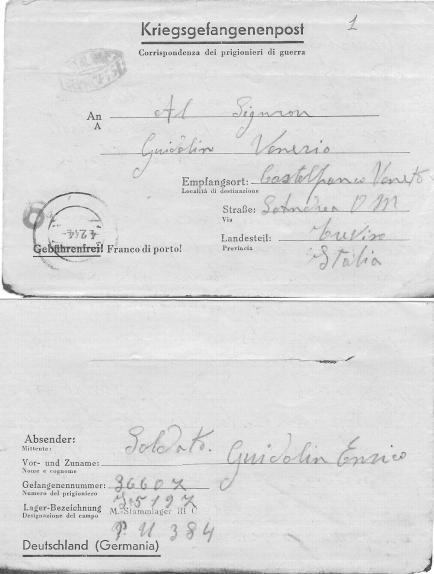 Kriegsgefangenenpost
1
Corrispondenza dei prigionieri di guerra
An Al Signon
A
Guidolin Venerio
Empfangsort: Castelfranco Veneto
Località di destinazione
Straße: S. Andrea O M
Via
Landesteil: Treviso
Provincia
Italia
6
4.2.44
Gebührenfrei! Franco di porto!
Absender: Soldato.
Mittente:
Vor- und Zuname: Guidolin Enrico
Nome e cognome
Gefangenennummer: 36607
Numero del prigioniero
Lager-Bezeichnung M.-Stammlager III
Designazione del campo
P U 384
Deutschland (Germania)